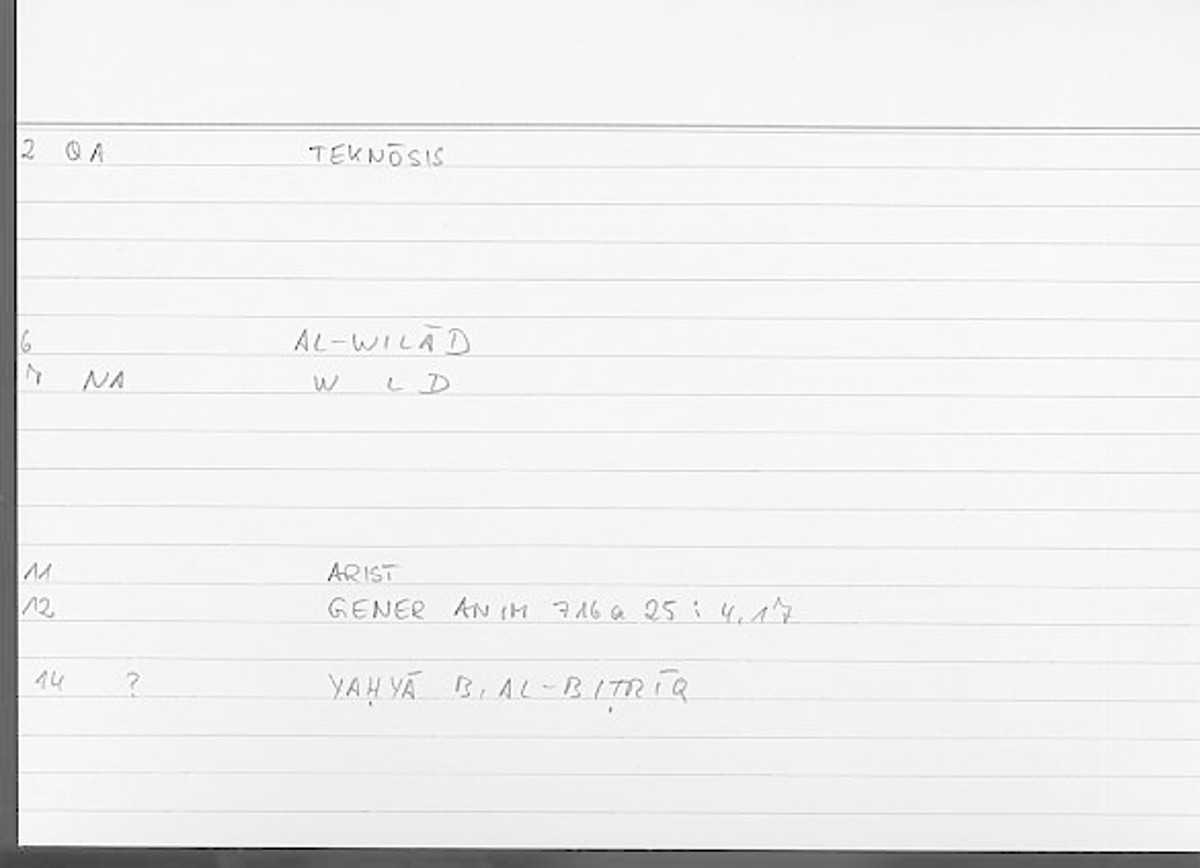 2 QA TEKNŌSIS
6 AL-WILĀD
7 NA W L D
11 ARIST
12 GENER ANIM 716a 25 : 4,17
14 ? YAḤYĀ B. AL-BIṬRĪQ